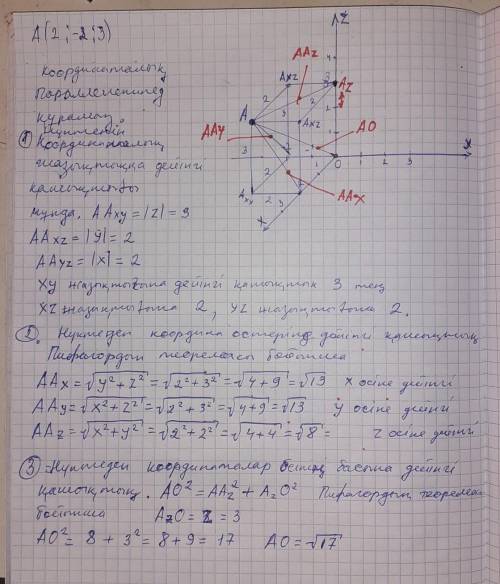 A(2;-2;3)
Координаталық
Параллелепипед
құрамыз.
① Нүктенің
Координаталық
жазықтыққа дейінгі
қашықтығы
мұнда, AAxy = |z| = 3
AAxz = |y| = 2
AAyz = |x| = 2
xy жазықтығына дейінгі қашықтық 3 тең
xz жазықтығына 2, yz жазықтығына 2.
② Нүктеден координа остеріне дейінгі қашықтық
Пифагордың теоремасы бойынша
AAx = √y²+z² = √2²+3² = √4+9 = √13 x осіне дейінгі
AAy = √x²+z² = √2²+3² = √4+9 = √13 y осіне дейінгі
AAz = √x²+y² = √2²+2² = √4+4 = √8 = z осіне дейінгі
③ Нүктеден координаталар басына дейінгі
қашықтық. AO² = AAz² + AzO² Пифагордың теоремасы
бойынша AzO = z = 3
AO² = 8 + 3² = 8 + 9 = 17 AO = √17
z
AAz
Axz
Az
A
AAy
AO
AAx
Axy
x
0
1
2
3